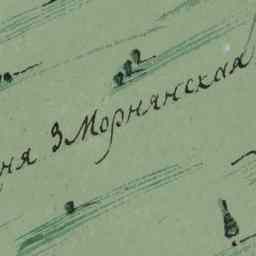 ня З Морнянская